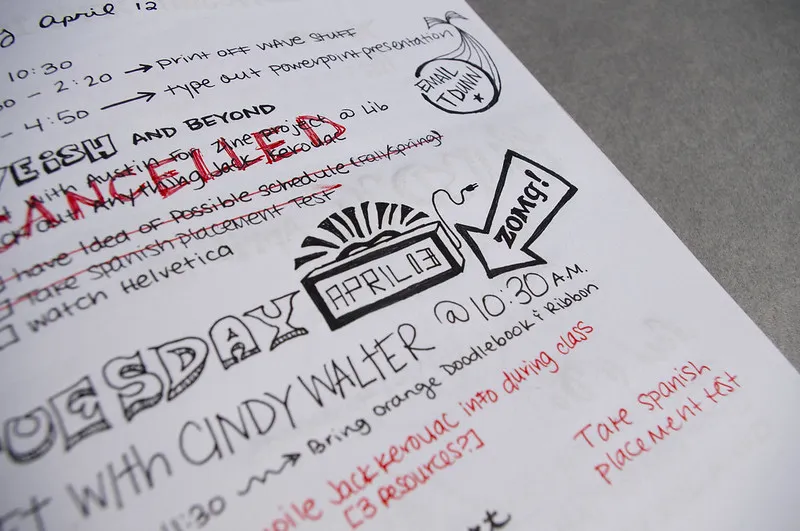 April 12
10:30
- 2:20 → print off wave stuff
- 4:50 → type out powerpoint presentation
EMAIL
T DUNN
VEISH AND BEYOND
with Austin for zine project @ Lib
CANCELLED
Anything Jack Kerouac
have Idea of Possible schedule (fall/spring)
Take Spanish Placement Test
watch Helvetica
ZOMG!
APRIL 13
TUESDAY
WITH CINDY WALTER @ 10:30 A.M.
11:30 → Bring orange Doodlebook & Ribbon
Jack Kerouac info during class
[3 resources?]
Take spanish
placement test